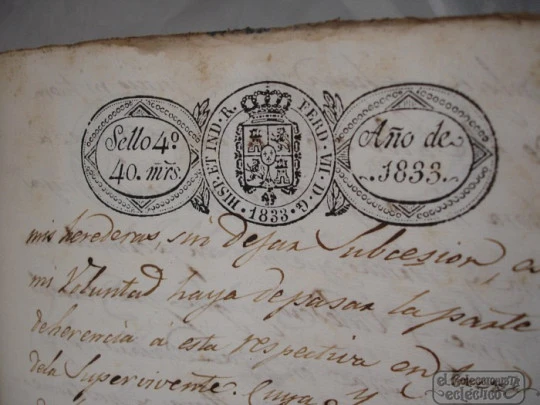 Sello 4º
40. mrs.
HISP. ET IND. R. FERD. VII. D. G.
· 1833 ·
Año de
· 1833 ·
mis herederas, sin dejar Subcesion, a
mi Voluntad haya de pasar la parte
de herencia á esta respectiva en
dela Supervivente. Cuya y
el
eclectico